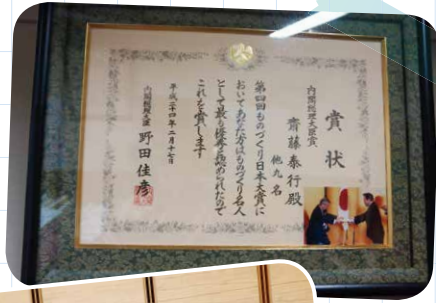 賞状
内閣総理大臣賞
齋藤泰行殿
他九名
第四回ものづくり日本大賞に
おいてあなた方はものづくり名人
として最も優秀と認められたので
これを賞します
平成二十四年二月十七日
内閣総理大臣 野田佳彦